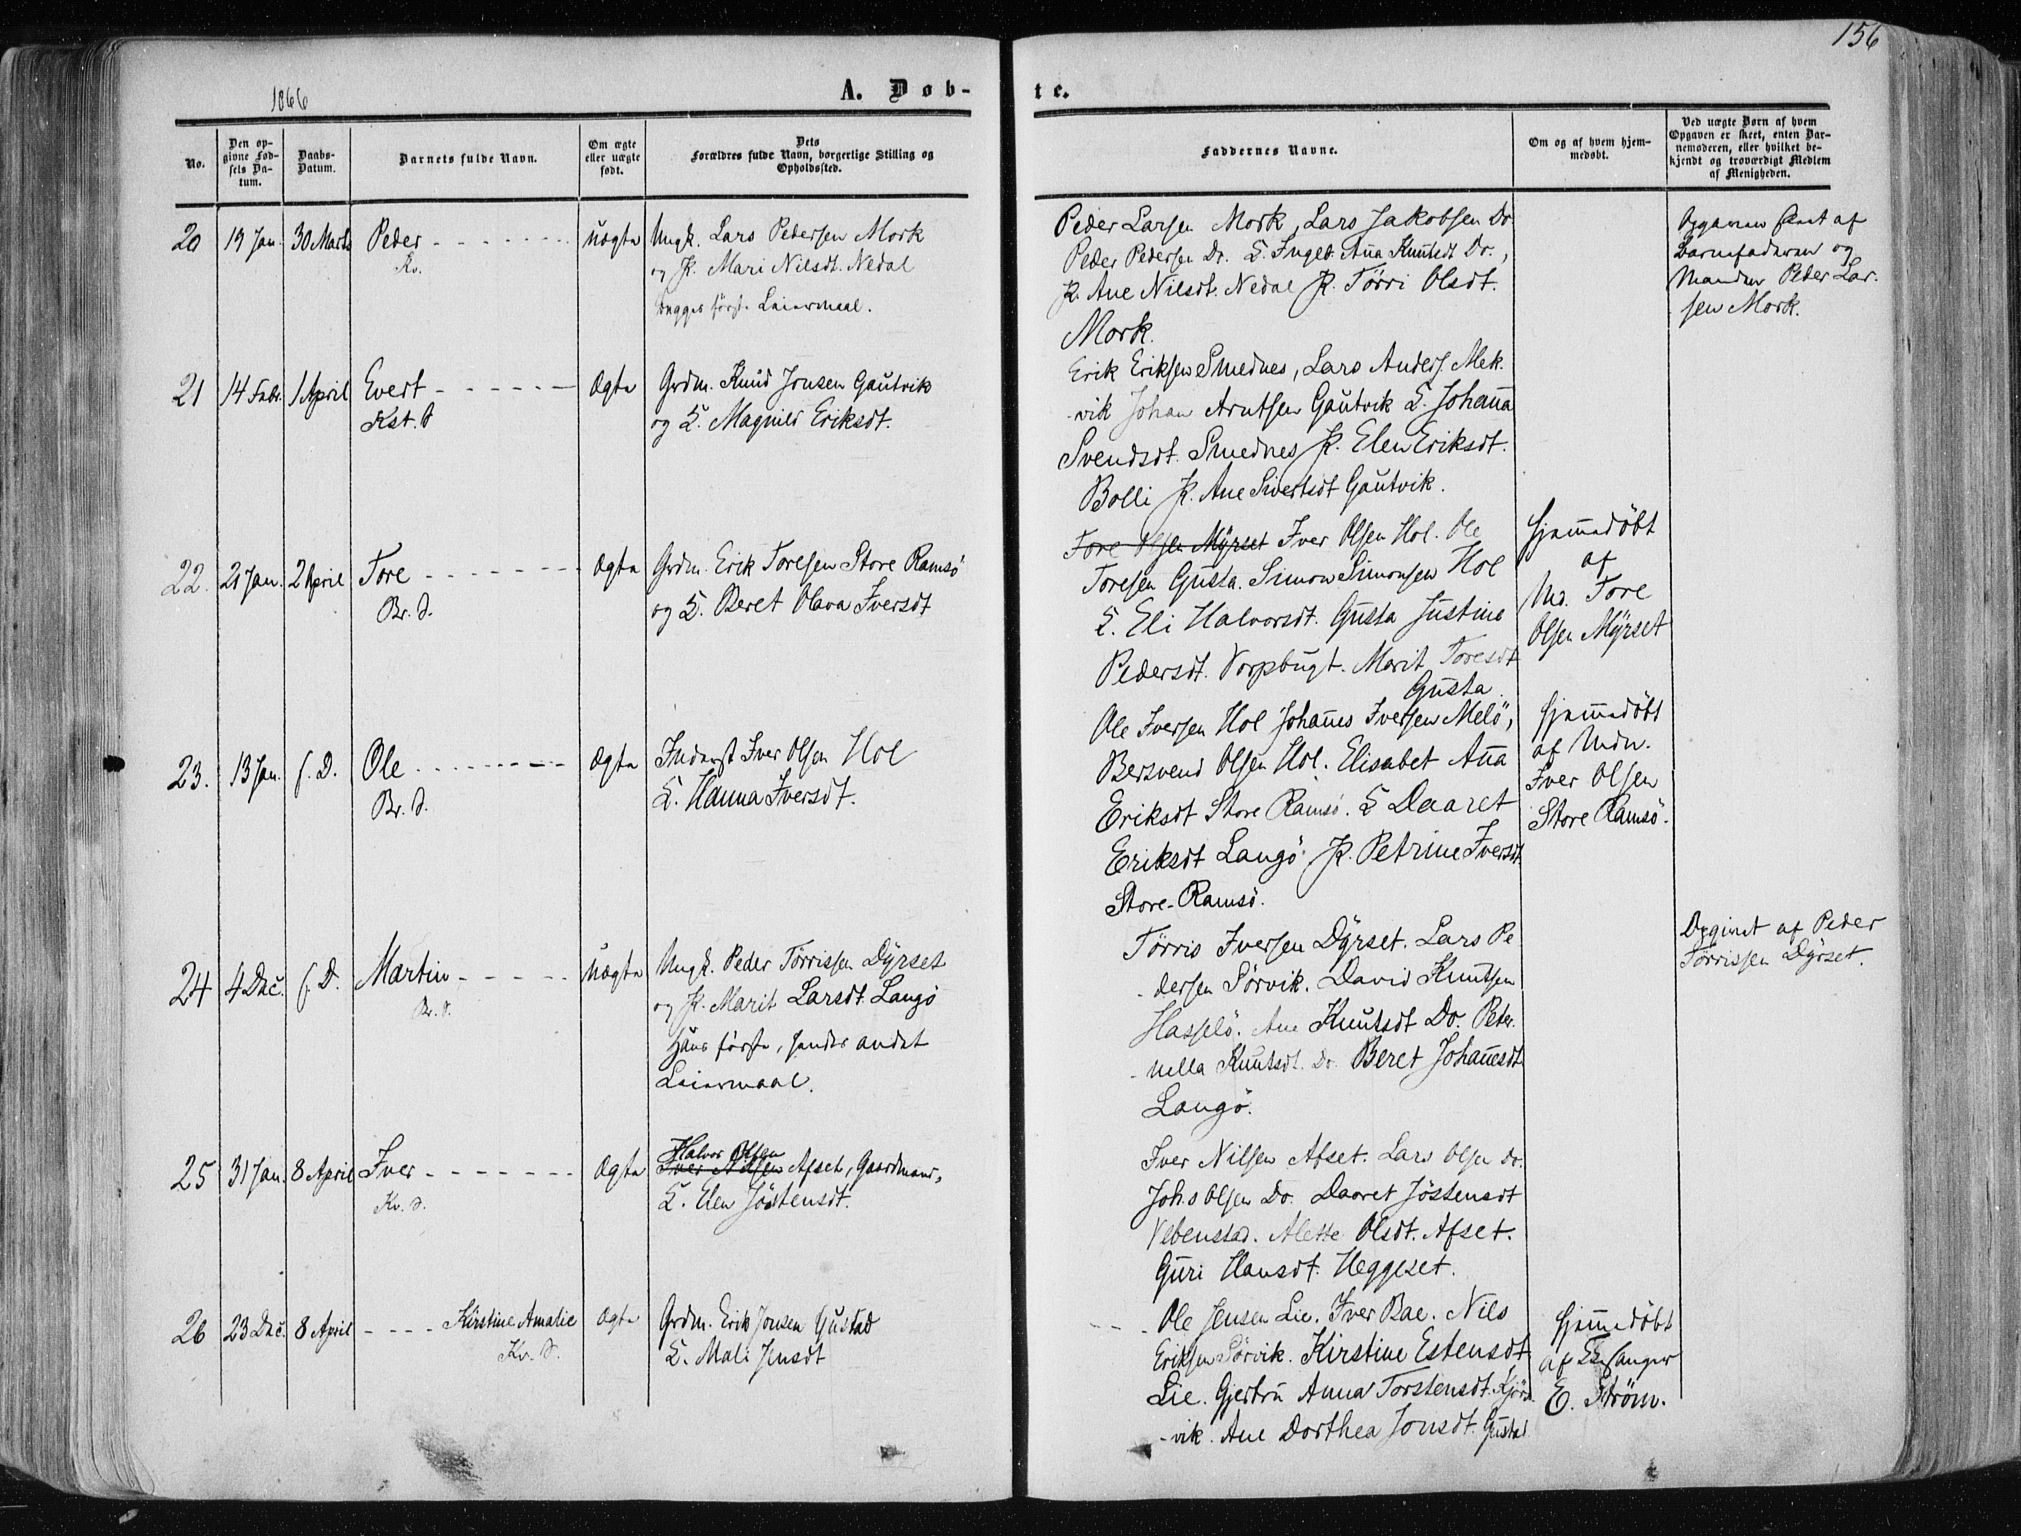 156
1866
A. Døb-
te.
No.
Den op-
givne Fød-
sels Da-
tum.
Daabs-
Datum.
Barnets fulde Navn.
Om ægte
eller uægte
født.
Dets
Forældres fulde Navn, borgerlige Stilling og
Opholdssted.
Faddernes Navne.
Om og af hvem hjem-
medøbt.
Ved uægte Børn af hvem
Opgaven er skeet, enten Bar-
nemoderen, eller hvilket be-
kjendt og troværdigt Medlem
af Menigheden.
20 19 Jan. 30 Marts Peder
Kv.
Uægte
Ungk. Lars Pedersen Mork
og P. Mari Nilsdt. Nedal
begges første Leiermaal.
Peder Larsen Mork, Lars Jakobsen Do
Peder Pedersen Do. E. Ingeb. Ana Knutsdt Do.,
P. Ane Nilsdt. Nedal P. Tørri Olsdt.
Mork.
Opgaven skeet af
Barnefaderen og
Manden Peder Lar-
sen Mork.
21 14 Febr. 1 April Evert
Kst. D
Ægte
Grdm. Knud Jonsen Gautvik
og E. Magnild Eriksdt.
Erik Eriksen Smednes, Lars Anders. Mek-
vik Johan Arntsen Gautvik E. Johana
Svendsdt. Smednes P. Elen Eriksdt.
Bolli P. Ane Sivertsdt Gautvik.
22. 21 Jan. 2 April Tore
Br. D.
Ægte
Grdm. Erik Toresen Store Ramsö
og E. Beret Olava Iversdt
Tore Olsen Myrset Iver Olsen Hol. Ole
Toresen Gusta. Simon Simonsen Hol
E. Eli Halvorsdt. Gusta Justine
Pedersdt. Vorpbugt. Marit Toresdt
Gusta.
Hjemmedöbt
af
Md. Tore
Olsen Myrset
23. 13 Jan. s. D. Ole
Br. D.
Ægte
Inderst Iver Olsen Hol
E. Hanna Iversdt.
Ole Iversen Hol Johanes Iversen Melö,
Bersvend Olsen Hol. Elisabet Ana
Eriksdt Store Ramsö. E Daaret
Eriksdt Langö P. Petrine Iversdt
Store-Ramsö.
Hjemmedöbt
af Mdn.
Iver Olsen
Store Ramsö.
24 4 Dec. s. D. Martin
Br. D.
Uægte
Ungk. Peder Tørrissen Dyrset
og P. Marit Larsdt. Langö
Hans første, hendes andet
Leiermaal.
Tørris Iversen Dyrset. Lars Pe
-dersen Sörvik. David Knutsen
Hasselö. Ane Knutsdt Do. Peter-
-nella Knutsdt. Do. Beret Johanesdt
Langö.
Opgivet af Peder
Tørrissen Dyrset.
25 31 Jan. 8 April Iver
Kv. D.
Ægte
Halvor Olsen
Iver Nilsen Afset, Gaardmand,
E. Elen Jöstensdt.
Iver Nilsen Afset. Lars Olsen do.
Johs Olsen Do. Daaret Jöstensdt
Vebenstad. Alette Olsdt. Afset.
Guri Hansdt. Heggeset.
26 23 Dec. 8 April Kirstine Amalie
Kv. D.
Ægte
Grdm. Erik Jonsen Gustad
E. Mali Jensdt
Ole Jensen Lie. Iver Bae. Nils
Eriksen Sörvik. Kirstine Estensdt
Lie. Gjertru Anna Torstensdt. Kjörs
-vik. Ane Dorthea Jonsdt. Gustad
Hjemmedöbt
af Kirkesanger
E. Ström.